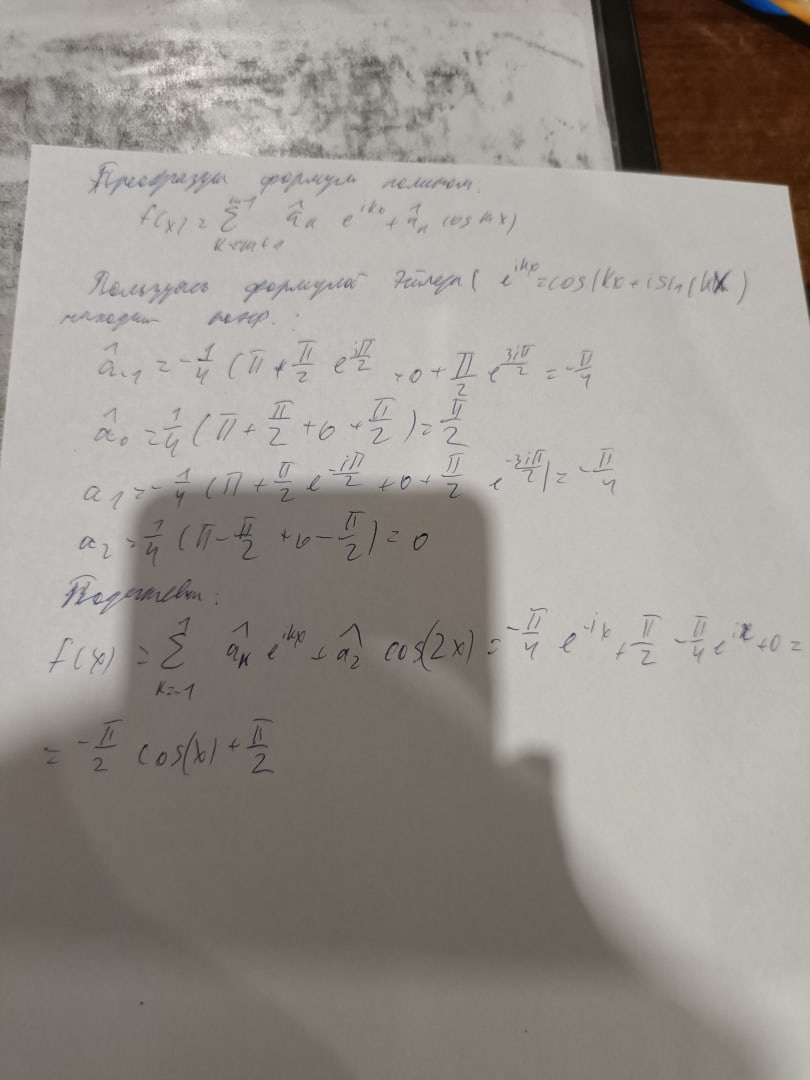 Преобразуя формулу полином:
f(x) = Σ_{k=-m+1}^{m-1} â_k e^{ikx} + â_n cos mx)
Пользуясь формулой Эйлера ( e^{ikx} = cos(kx + i sin(kx)
находим коэф.:
â_{-1} = -1/4 (π + π/2 e^{iπ/2} + 0 + π/2 e^{3iπ/2} = -π/4
â_0 = 1/4 (π + π/2 + 0 + π/2) = π/2
a_1 = -1/4 (π + π/2 e^{-iπ/2} + 0 + π/2 e^{-3iπ/2}) = -π/4
a_2 = 1/4 (π - π/2 + 0 - π/2) = 0
Подставим:
f(x) = Σ_{k=-1}^{1} â_k e^{ikx} + â_2 cos(2x) = -π/4 e^{-ix} + π/2 - π/4 e^{ix} + 0 =
= -π/2 cos(x) + π/2